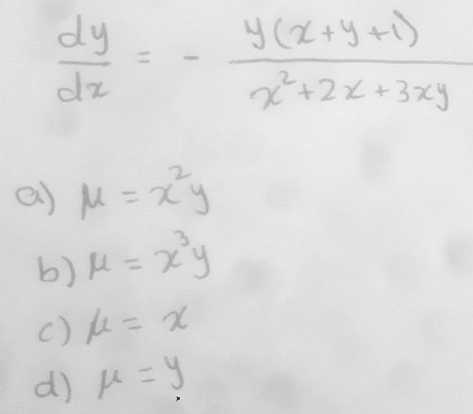 dy/dx = - y(x+y+1)/x²+2x+3xy
a) μ = x²y
b) μ = x³y
c) μ = x
d) μ = y